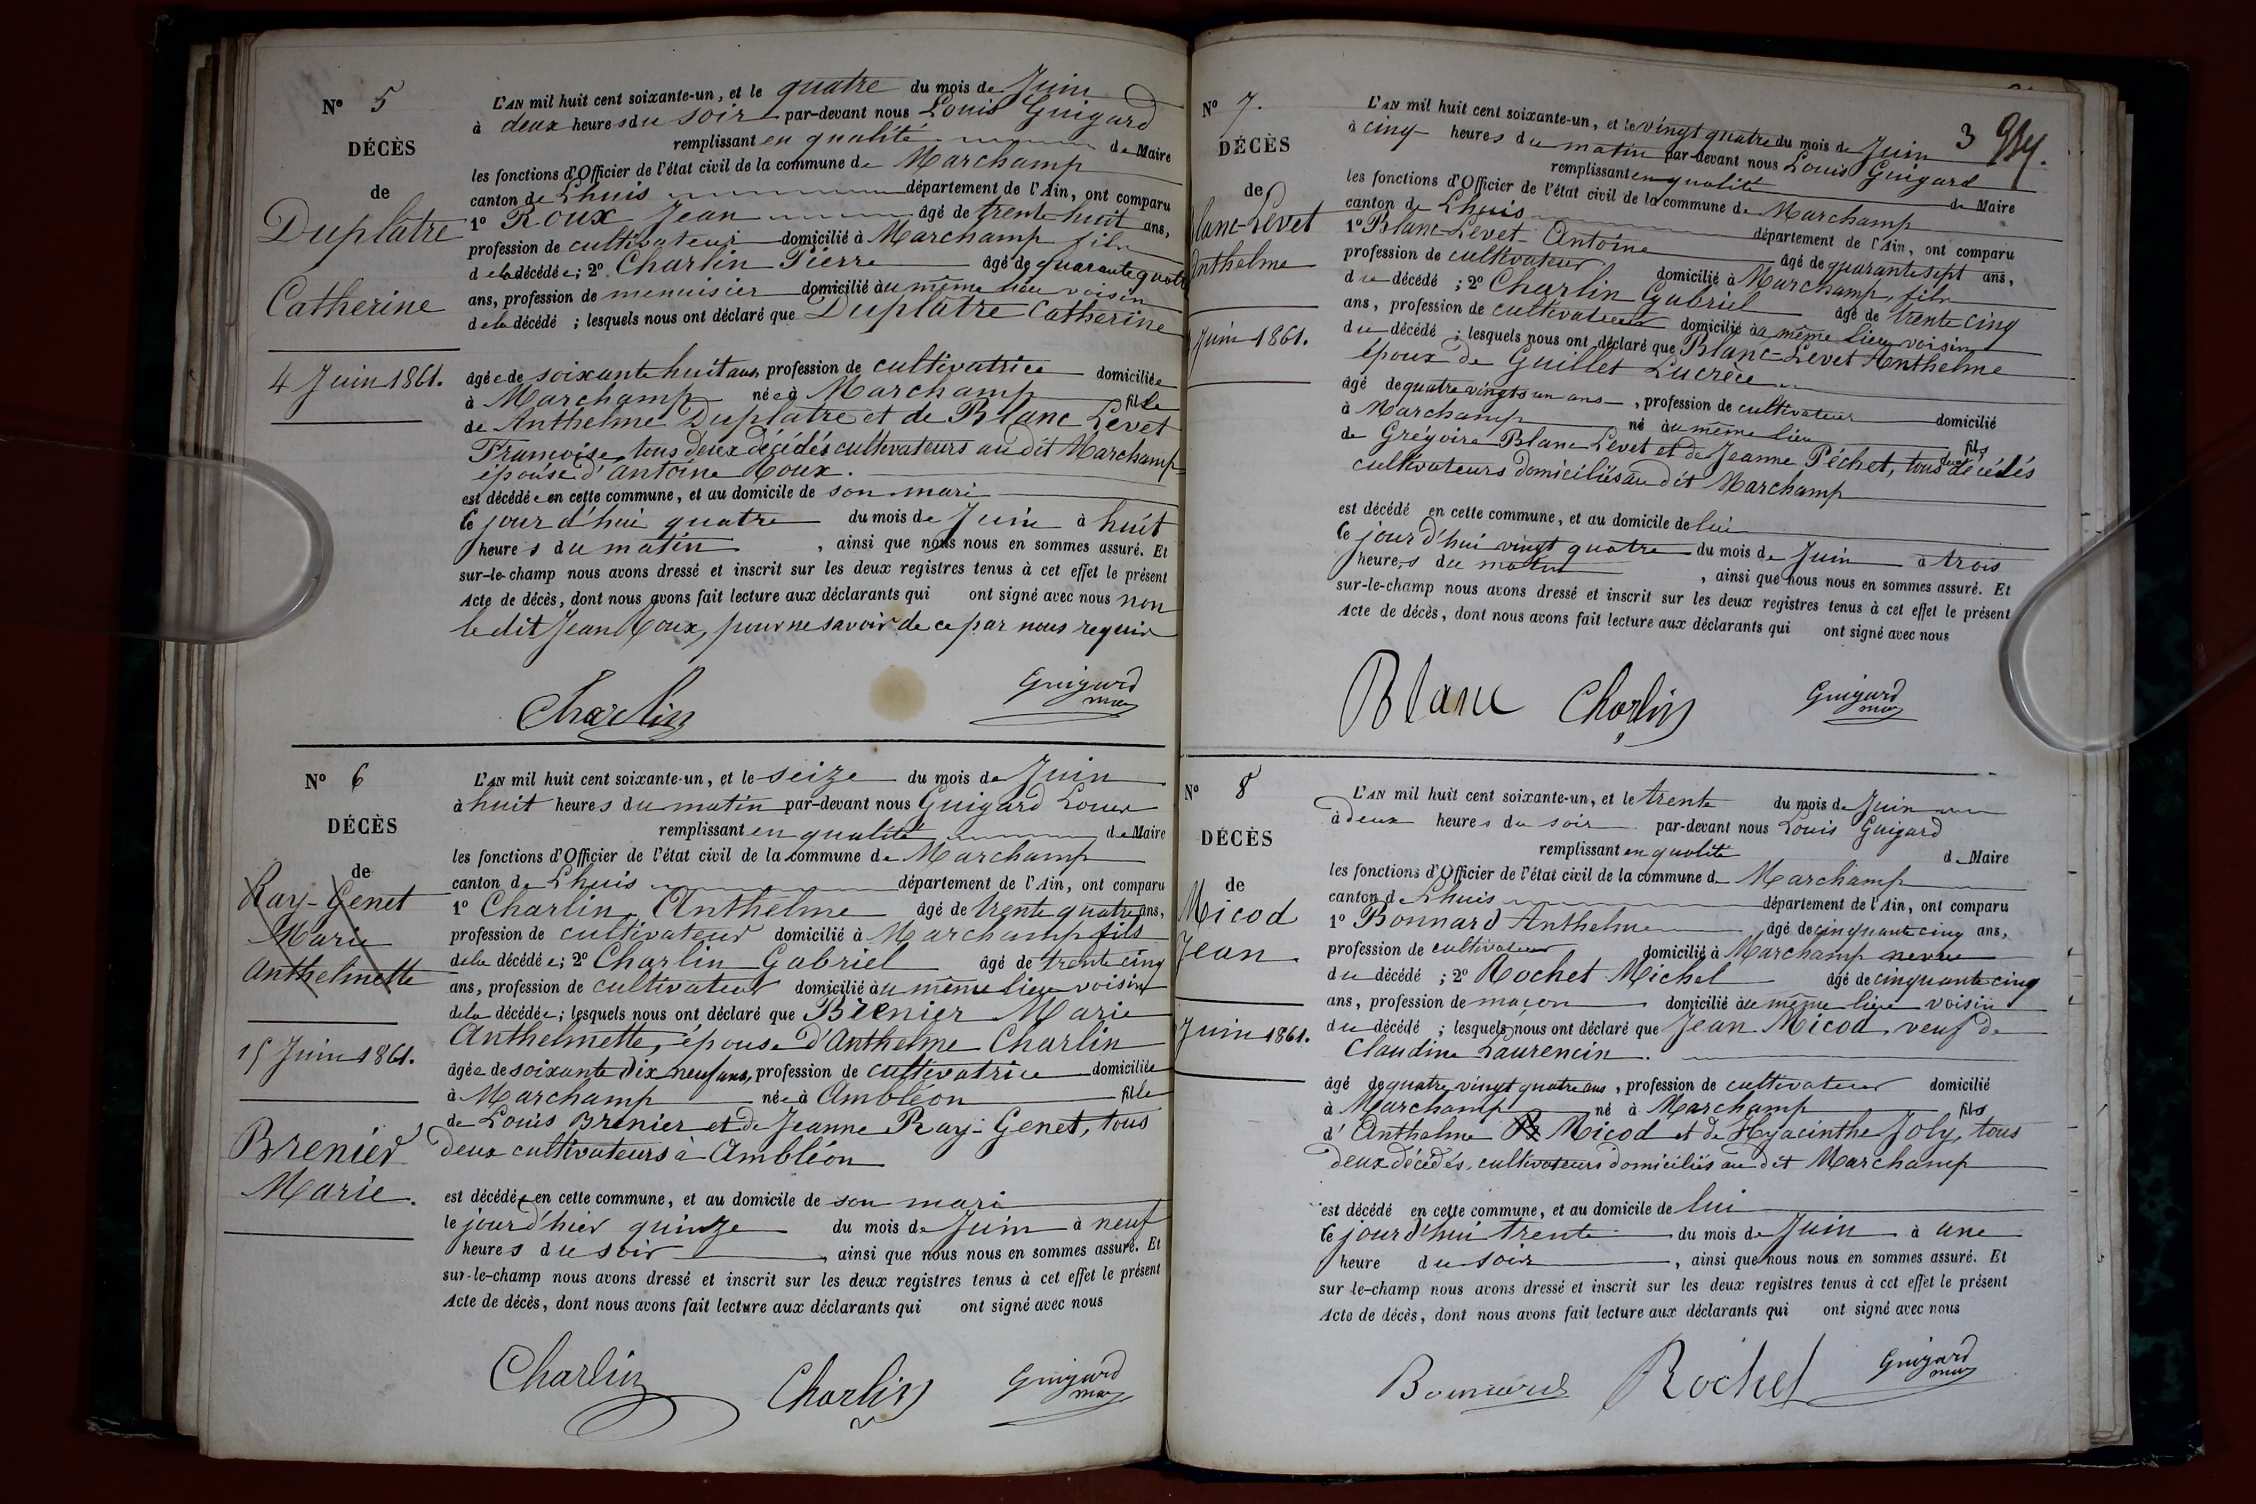 N° 5
DÉCÈS
de
Duplatre
Catherine
4 Juin 1861.
L'AN mil huit cent soixante-un, et le quatre du mois de Juin
à deux heures du soir par-devant nous Louis Guigard
remplissant en qualité de Maire
les fonctions d'Officier de l'état civil de la commune de Marchamp
canton de Lhuis département de l'Ain, ont comparu
1° Roux Jean âgé de trente huit ans,
profession de cultivateur domicilié à Marchamp fils
de la décédée; 2° Charlin Pierre âgé de quarante quatre
ans, profession de menuisier domicilié au même lieu voisin
de la décédé ; lesquels nous ont déclaré que Duplatre Catherine
âgée de soixante huit ans, profession de cultivatrice domiciliée
à Marchamp née à Marchamp fille
de Anthelme Duplatre et de Blanc Levet
Françoise, tous deux décédés cultivateurs au dit Marchamp
épouse d'Antoine Roux.
est décédée en cette commune, et au domicile de son mari
ce jour d'hui quatre du mois de Juin à huit
heures du matin , ainsi que nous nous en sommes assuré. Et
sur-le-champ nous avons dressé et inscrit sur les deux registres tenus à cet effet le présent
Acte de décès, dont nous avons fait lecture aux déclarants qui ont signé avec nous non
le dit Jean Roux, pour ne savoir de ce par nous requir
Charlin Guigard
N° 6
DÉCÈS
de
Ray-Genet
Marie
Anthelmette
15 Juin 1861.
Brenier
Marie.
L'AN mil huit cent soixante-un, et le seize du mois de Juin
à huit heures du matin par-devant nous Guigard Louis
remplissant en qualité de Maire
les fonctions d'Officier de l'état civil de la commune de Marchamp
canton de Lhuis département de l'Ain, ont comparu
1° Charlin Anthelme âgé de trente quatre ans,
profession de cultivateur domicilié à Marchamp fils
de la décédée; 2° Charlin Gabriel âgé de trente cinq
ans, profession de cultivateur domicilié au même lieu voisin
de la décédée; lesquels nous ont déclaré que Brenier Marie
Anthelmette, épouse d'Anthelme Charlin
âgée de soixante dix neuf ans, profession de cultivatrice domiciliée
à Marchamp née à Ambléon fille
de Louis Brenier et de Jeanne Ray-Genet, tous
deux cultivateurs à Ambléon
est décédée en cette commune, et au domicile de son mari
le jour d'hier quinze du mois de Juin à neuf
heures du soir , ainsi que nous nous en sommes assuré. Et
sur-le-champ nous avons dressé et inscrit sur les deux registres tenus à cet effet le présent
Acte de décès, dont nous avons fait lecture aux déclarants qui ont signé avec nous
Charlin Charlin Guigard
3
N° 7.
DÉCÈS
de
lanc-Levet
Anthelme
Juin 1861.
L'AN mil huit cent soixante-un, et le vingt quatre du mois de Juin
à cinq heures du matin par-devant nous Louis Guigard
remplissant en qualité de Maire
les fonctions d'Officier de l'état civil de la commune de Marchamp
canton de Lhuis département de l'Ain, ont comparu
1° Blanc-Levet Antoine âgé de quarante sept ans,
profession de cultivateur domicilié à Marchamp, fils
du décédé ; 2° Charlin Gabriel âgé de trente cinq
ans, profession de cultivateur domicilié au même lieu voisin
du décédé ; lesquels nous ont déclaré que Blanc-Levet Anthelme
époux de Guillet Lucrèce
âgé de quatre vingts un ans , profession de cultivateur domicilié
à Marchamp né au même lieu fils
de Grégoire Blanc Levet et de Jeanne Péchet, tous deux décédés
cultivateurs domiciliés au dit Marchamp
est décédé en cette commune, et au domicile de lui
ce jour d'hui vingt quatre du mois de Juin à trois
heures du matin , ainsi que nous nous en sommes assuré. Et
sur-le-champ nous avons dressé et inscrit sur les deux registres tenus à cet effet le présent
Acte de décès, dont nous avons fait lecture aux déclarants qui ont signé avec nous
Blanc Charlin Guigard
N° 8
DÉCÈS
de
Micod
Jean.
Juin 1861.
L'AN mil huit cent soixante-un, et le trente du mois de Juin
à deux heures du soir par-devant nous Louis Guigard
remplissant en qualité de Maire
les fonctions d'Officier de l'état civil de la commune de Marchamp
canton de Lhuis département de l'Ain, ont comparu
1° Bonnard Anthelme âgé de cinquante cinq ans,
profession de cultivateur domicilié à Marchamp neveu
du décédé ; 2° Rochet Michel âgé de cinquante cinq
ans, profession de maçon domicilié au même lieu voisin
du décédé ; lesquels nous ont déclaré que Jean Micod, veuf de
Claudine Laurencin.
âgé de quatre vingt quatre ans, profession de cultivateur domicilié
à Marchamp né à Marchamp fils
d'Anthelme Micod et de Hyacinthe Joly, tous
deux décédés, cultivateurs domiciliés au dit Marchamp
est décédé en cette commune, et au domicile de lui
ce jour d'hui trente du mois de Juin à une
heure du soir , ainsi que nous nous en sommes assuré. Et
sur-le-champ nous avons dressé et inscrit sur les deux registres tenus à cet effet le présent
Acte de décès, dont nous avons fait lecture aux déclarants qui ont signé avec nous
Bonnard Rochet Guigard